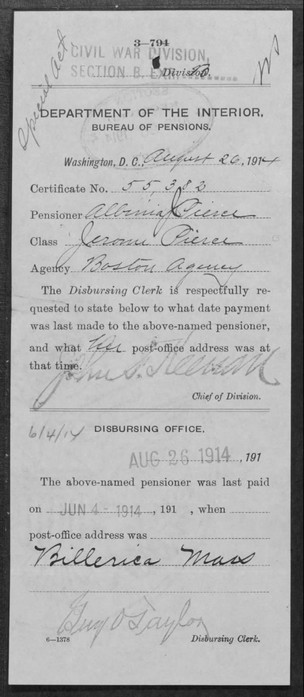 3—794
Special Act
CIVIL WAR DIVISION,
SECTION B, Division
DEPARTMENT OF THE INTERIOR,
BUREAU OF PENSIONS.
Washington, D. C., August 26, 1914
Certificate No. 55,382
Pensioner Albinia Pierce
Class Jerome Pierce
Agency Boston Agency
The Disbursing Clerk is respectfully re-
quested to state below to what date payment
was last made to the above-named pensioner,
and what her post-office address was at
that time.
Chief of Division.
6/4/14
DISBURSING OFFICE.
AUG 26 1914, 191
The above-named pensioner was last paid
on JUN 4 - 1914, 191 , when
post-office address was
Billerica Mass
Guy O Taylor
6—1378 Disbursing Clerk.